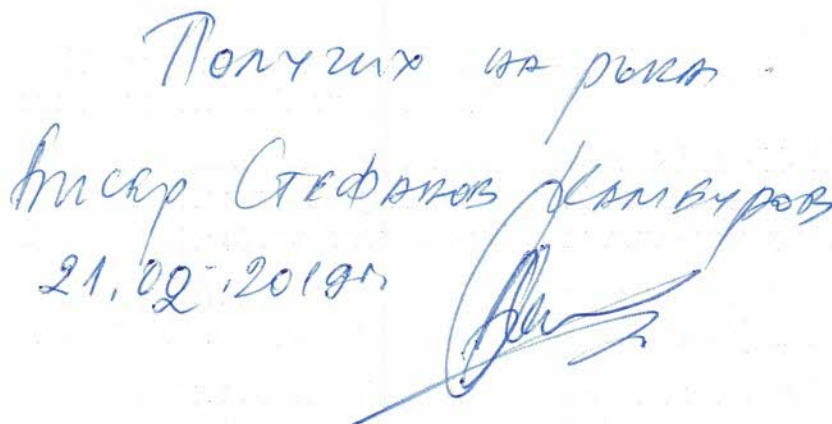 Получих на ръка.
Аксар Стефанов Камбуров
21.02.2019г.